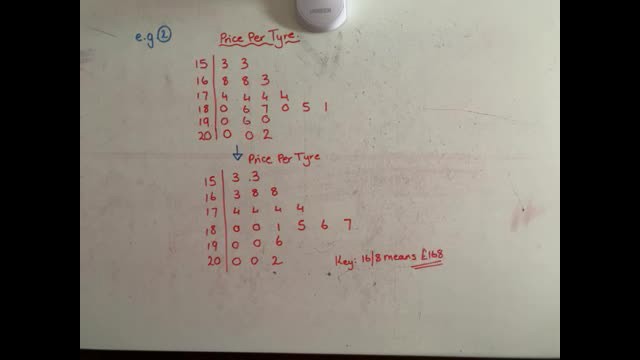 e.g ② Price Per Tyre.
15 | 3 3
16 | 8 8 3
17 | 4 4 4 4
18 | 0 6 7 0 5 1
19 | 0 6 0
20 | 0 0 2
↓ Price Per Tyre
15 | 3 3
16 | 3 8 8
17 | 4 4 4 4
18 | 0 0 1 5 6 7
19 | 0 0 6
20 | 0 0 2 Key: 16|8 means £168